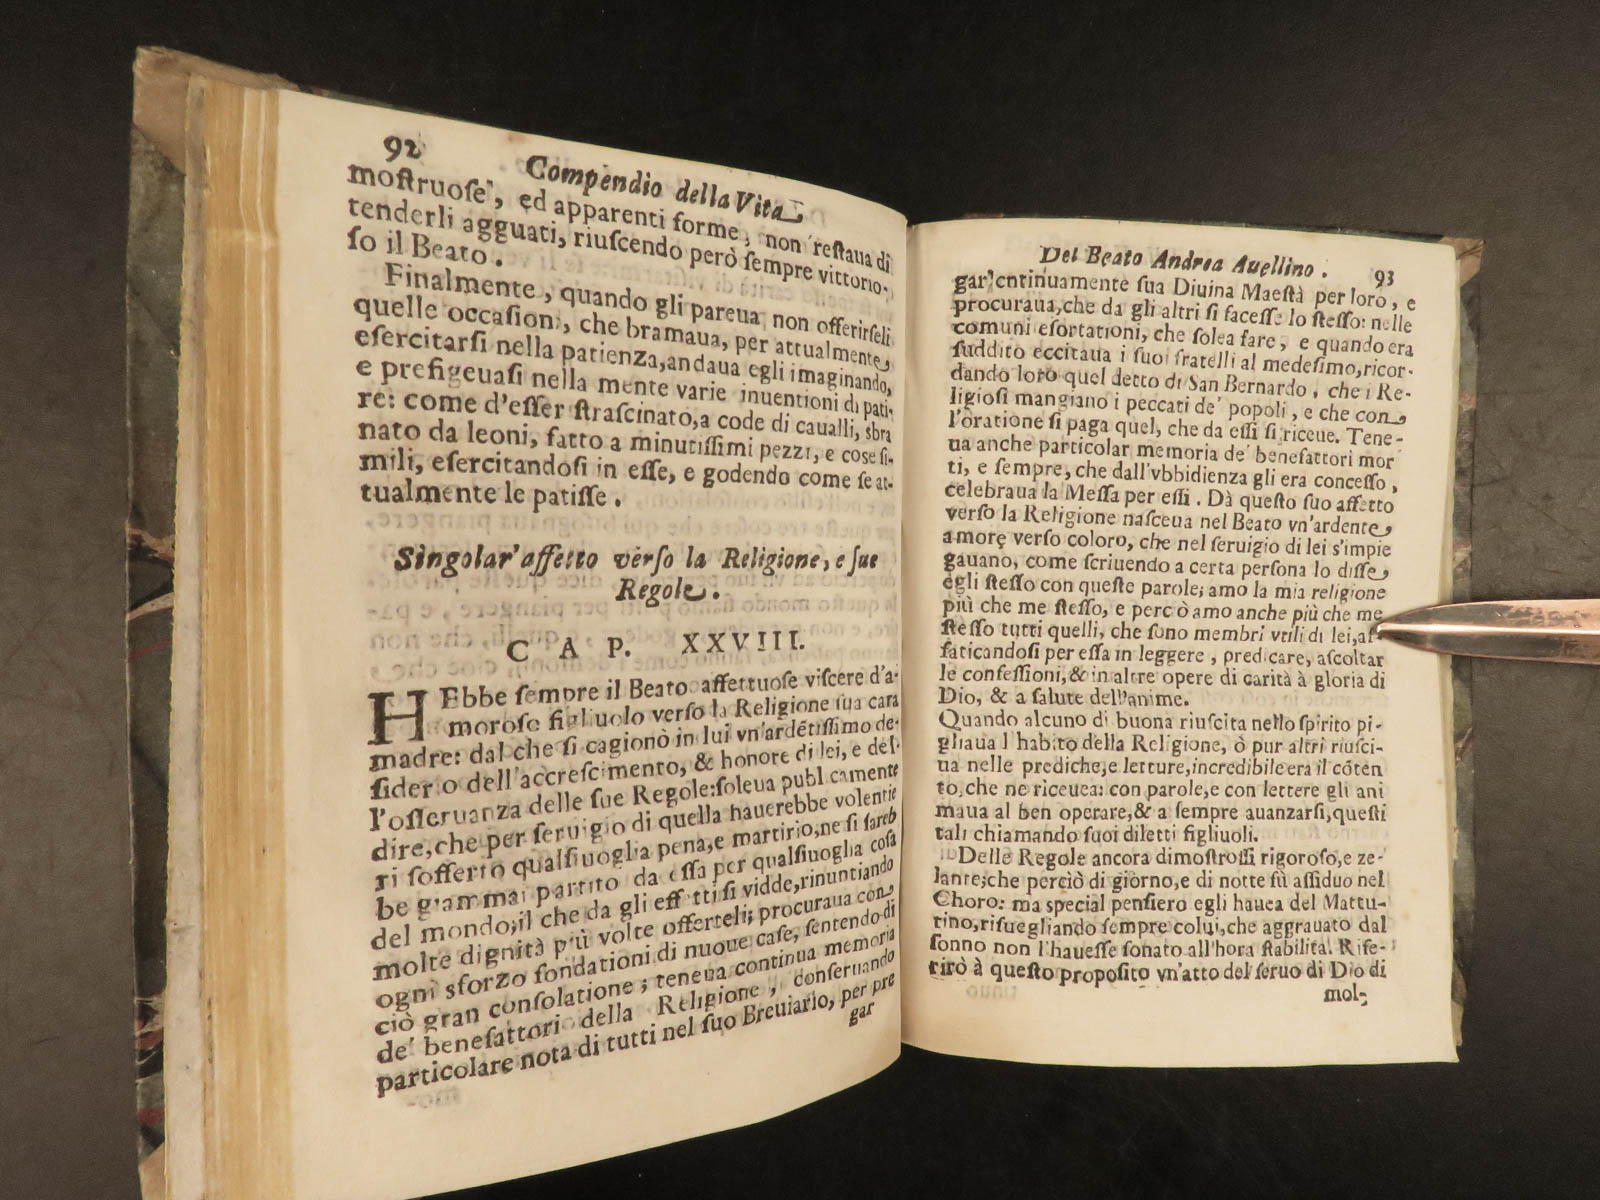 92
Compendio della Vita
moſtruoſe, ed apparenti forme, non reſtaua di
tenderli agguati, riuſcendo però ſempre vittorio-
ſo il Beato.
Finalmente, quando gli pareua non offerirſeli
quelle occaſion, che bramaua, per attualmente
eſercitarſi nella patienza, andaua egli imaginando,
e prefigeuaſi nella mente varie inuentioni di pati-
re: come d'eſſer ſtraſcinato, a code di caualli, sbra
nato da leoni, fatto a minutiſſimi pezzi, e coſe ſi-
mili, eſercitandoſi in eſſe, e godendo come ſe at-
tualmente le patiſſe.
Singolar' affetto verſo la Religione, e ſue
Regole.
CAP. XXVIII.
HEbbe ſempre il Beato affettuoſe viſcere d'a-
moroſo figliuolo verſo la Religione ſua cara
madre: dal che ſi cagionò in lui vn'ardẽtiſſimo de-
ſider o dell'accreſcimento, & honore di lei, e del-
l'oſſeruanza delle ſue Regole: ſoleua publ camente
dire, che per ſeruigio di quella hauerebbe volentie
ri ſofferto qualſiuoglia pena, e martirio, ne ſi ſareb
be giammai partito da eſſa per qualſiuoglia coſa
del mondo; il che da gli effetti ſi vidde, rinuntiando
molte dignità più volte offerteli; procuraua con
ogni sforzo fondationi di nuoue caſe, ſentendo di
ciò gran conſolatione; teneua continua memoria
de' benefattori della Religione, conſeruando
particolare nota di tutti nel ſuo Breuiario, per pre
gar
Del Beato Andrea Auellino. 93
gar' cntinuamente ſua Diuina Maeſtà per loro, e
procuraua, che da gli altri ſi faceſſe lo ſteſſo: nelle
comuni eſortationi, che ſolea fare, e quando era
ſuddito eccitaua i ſuoi fratelli al medeſimo, ricor-
dando loro quel detto di San Bernardo, che i Re-
ligioſi mangiano i peccati de' popoli, e che con
l'oratione ſi paga quel, che da eſſi ſi riceue. Tene-
ua anche particolar memoria de' benefattori mor
ti, e ſempre, che dall'vbbidienza gli era conceſſo,
celebraua la Meſſa per eſſi. Dà queſto ſuo affetto
verſo la Religione naſceua nel Beato vn'ardente
amore verſo coloro, che nel ſeruigio di lei s'impie
gauano, come ſcriuendo a certa perſona lo diſſe
egli ſteſſo con queſte parole; amo la mia religione
più che me ſteſſo, e perc ò amo anche più che me
ſteſſo tutti quelli, che ſono membri vtili di lei, af-
faticandoſi per eſſa in leggere, predicare, aſcoltar
le confeſſioni, & in altre opere di carità à gloria di
Dio, & a ſalute dell'anime.
Quando alcuno di buona riuſcita nello ſpirito pi-
gliaua l habito della Religione, ò pur altri riuſci-
ua nelle prediche, e letture, incredibile era il cõten
to, che ne riceuea: con parole, e con lettere gli ani
maua al ben operare, & a ſempre auanzarſi, queſti
tali chiamando ſuoi diletti figliuoli.
Delle Regole ancora dimoſtroſſi rigoroſo, e ze-
lante; che perciò di giorno, e di notte fù aſſiduo nel
Choro: ma ſpecial penſiero egli hauea del Mattu-
tino, riſuegliando ſempre colui, che aggrauato dal
ſonno non l'haueſſe ſonato all'hora ſtabilita. Rife-
rirò à queſto propoſito vn'atto del ſeruo di Dio di
mol-